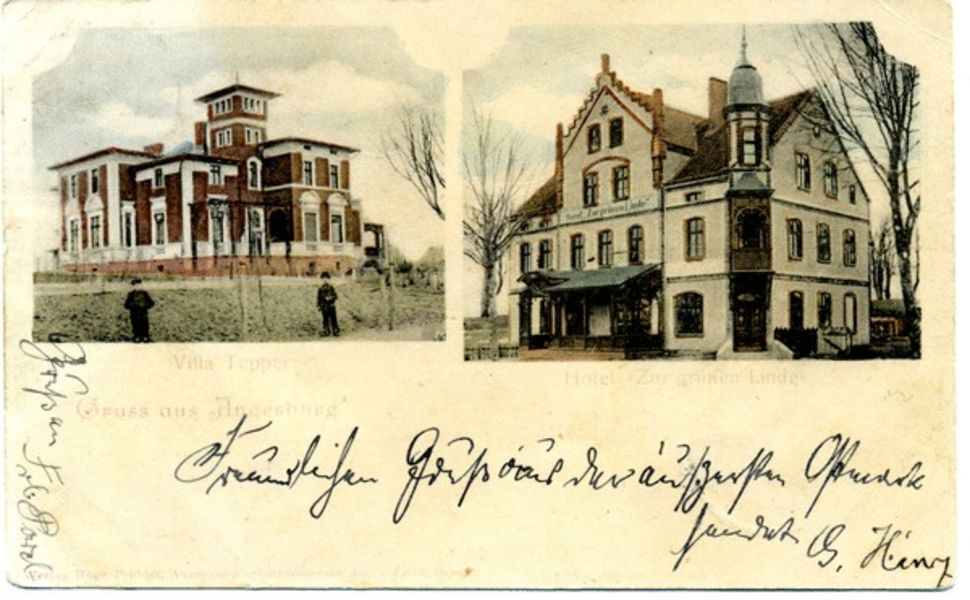 Hotel „Zur grünen Linde“
Villa Tepper
Hotel „Zur grünen Linde“
Gruss aus Angerburg
Freundlichen Gruß aus der äußersten Ostmark
sendet G. Hinz
Gruß an
Verlag Hugo Priddat, Angerburg